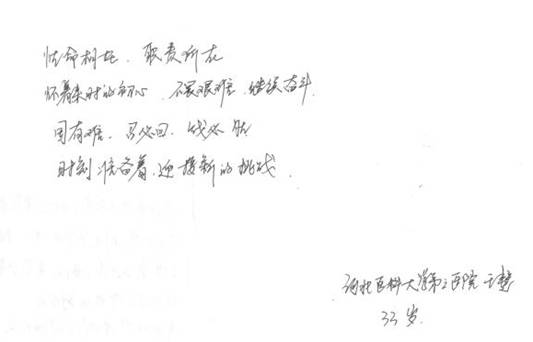 性命相托、职责所在
怀着来时的初心、不畏艰难、继续奋斗.
国有难、召必回、战必胜
时刻准备着、迎接新的挑战.
河北医科大学第二医院 王慧
33岁.